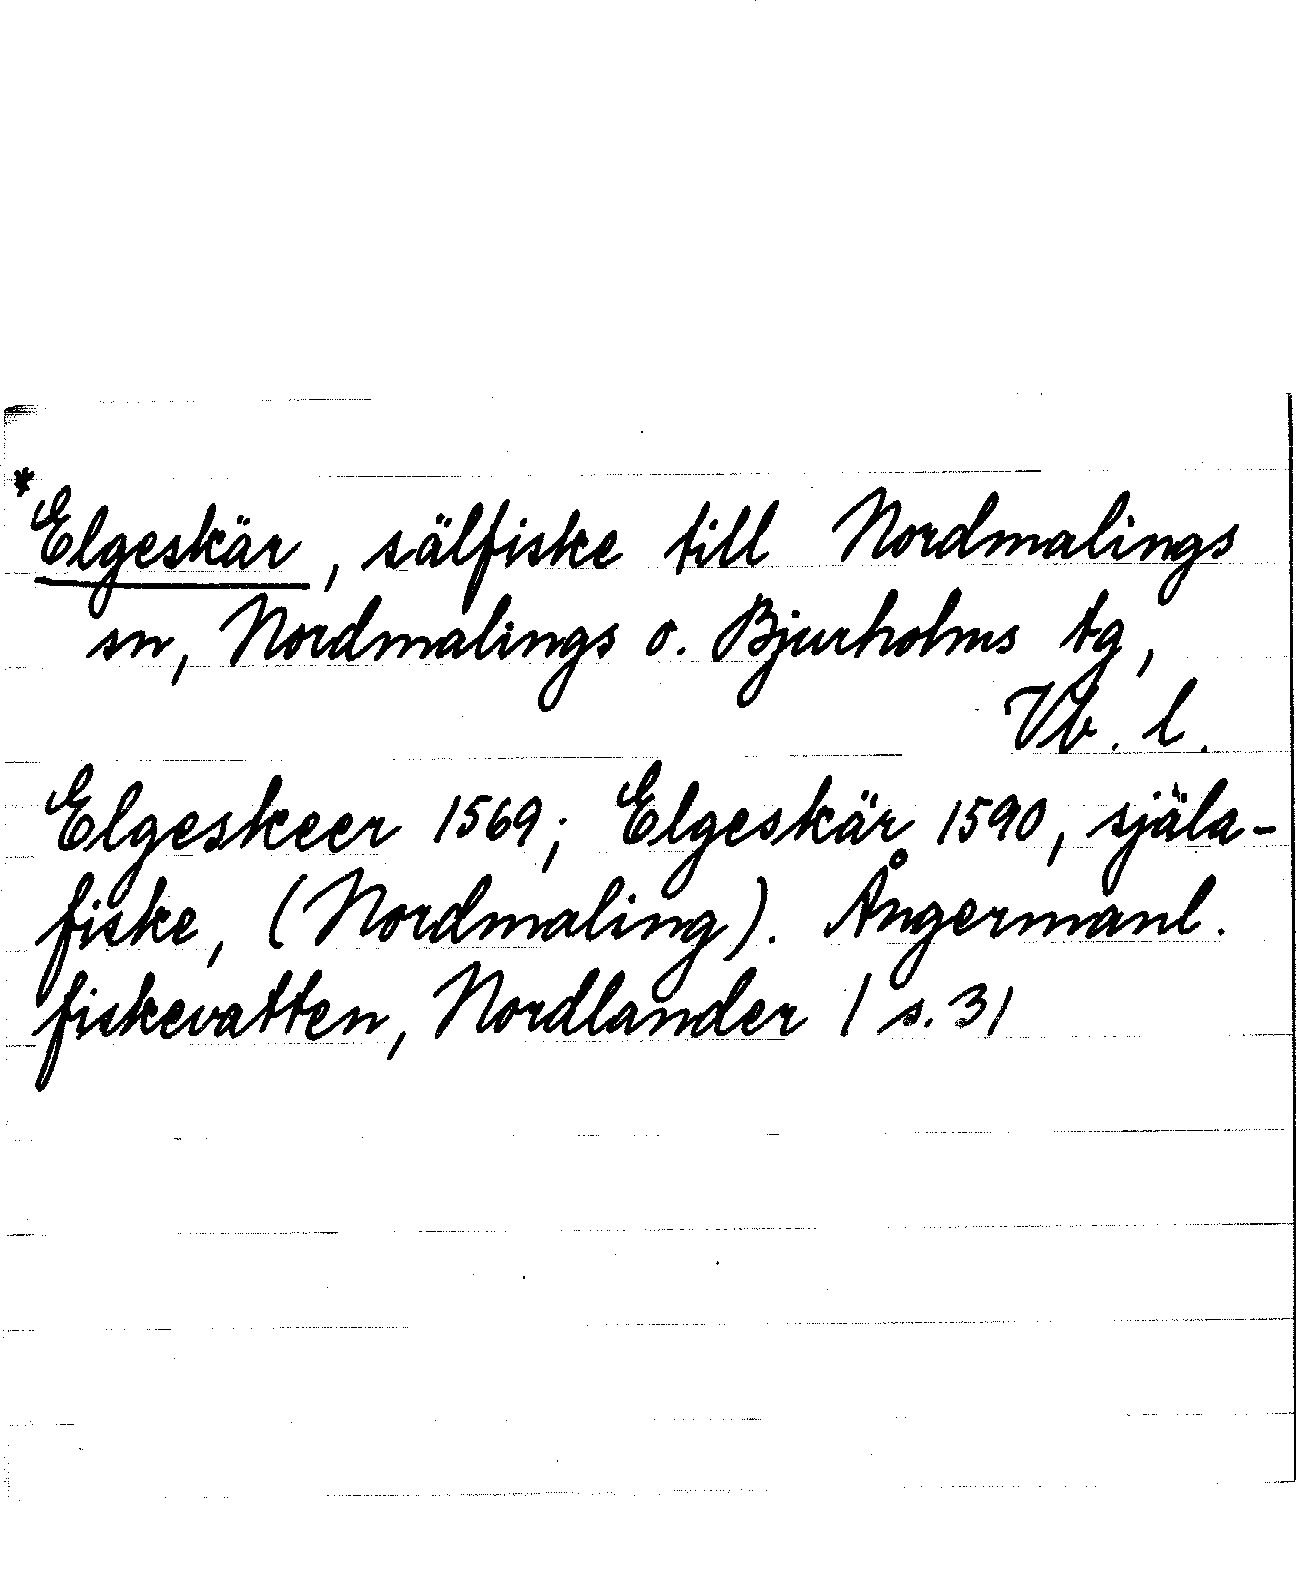 *Elgeskär, sälfiske till Nordmalings
sn, Nordmalings o. Bjurholms tg,
Vb. l.
Elgeskeer 1569; Elgeskär 1590, själa-
fiske, (Nordmaling). Ångermanl.
fiskevatten, Nordlander 1 s. 31